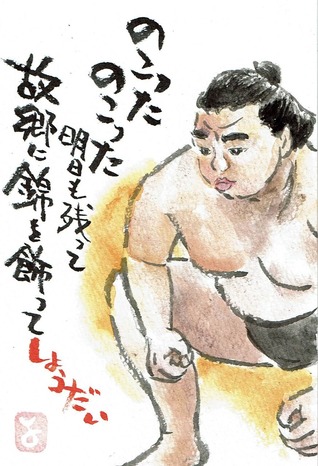 のこった
のこった
明日も残って
故郷に錦を飾って
しょうだい